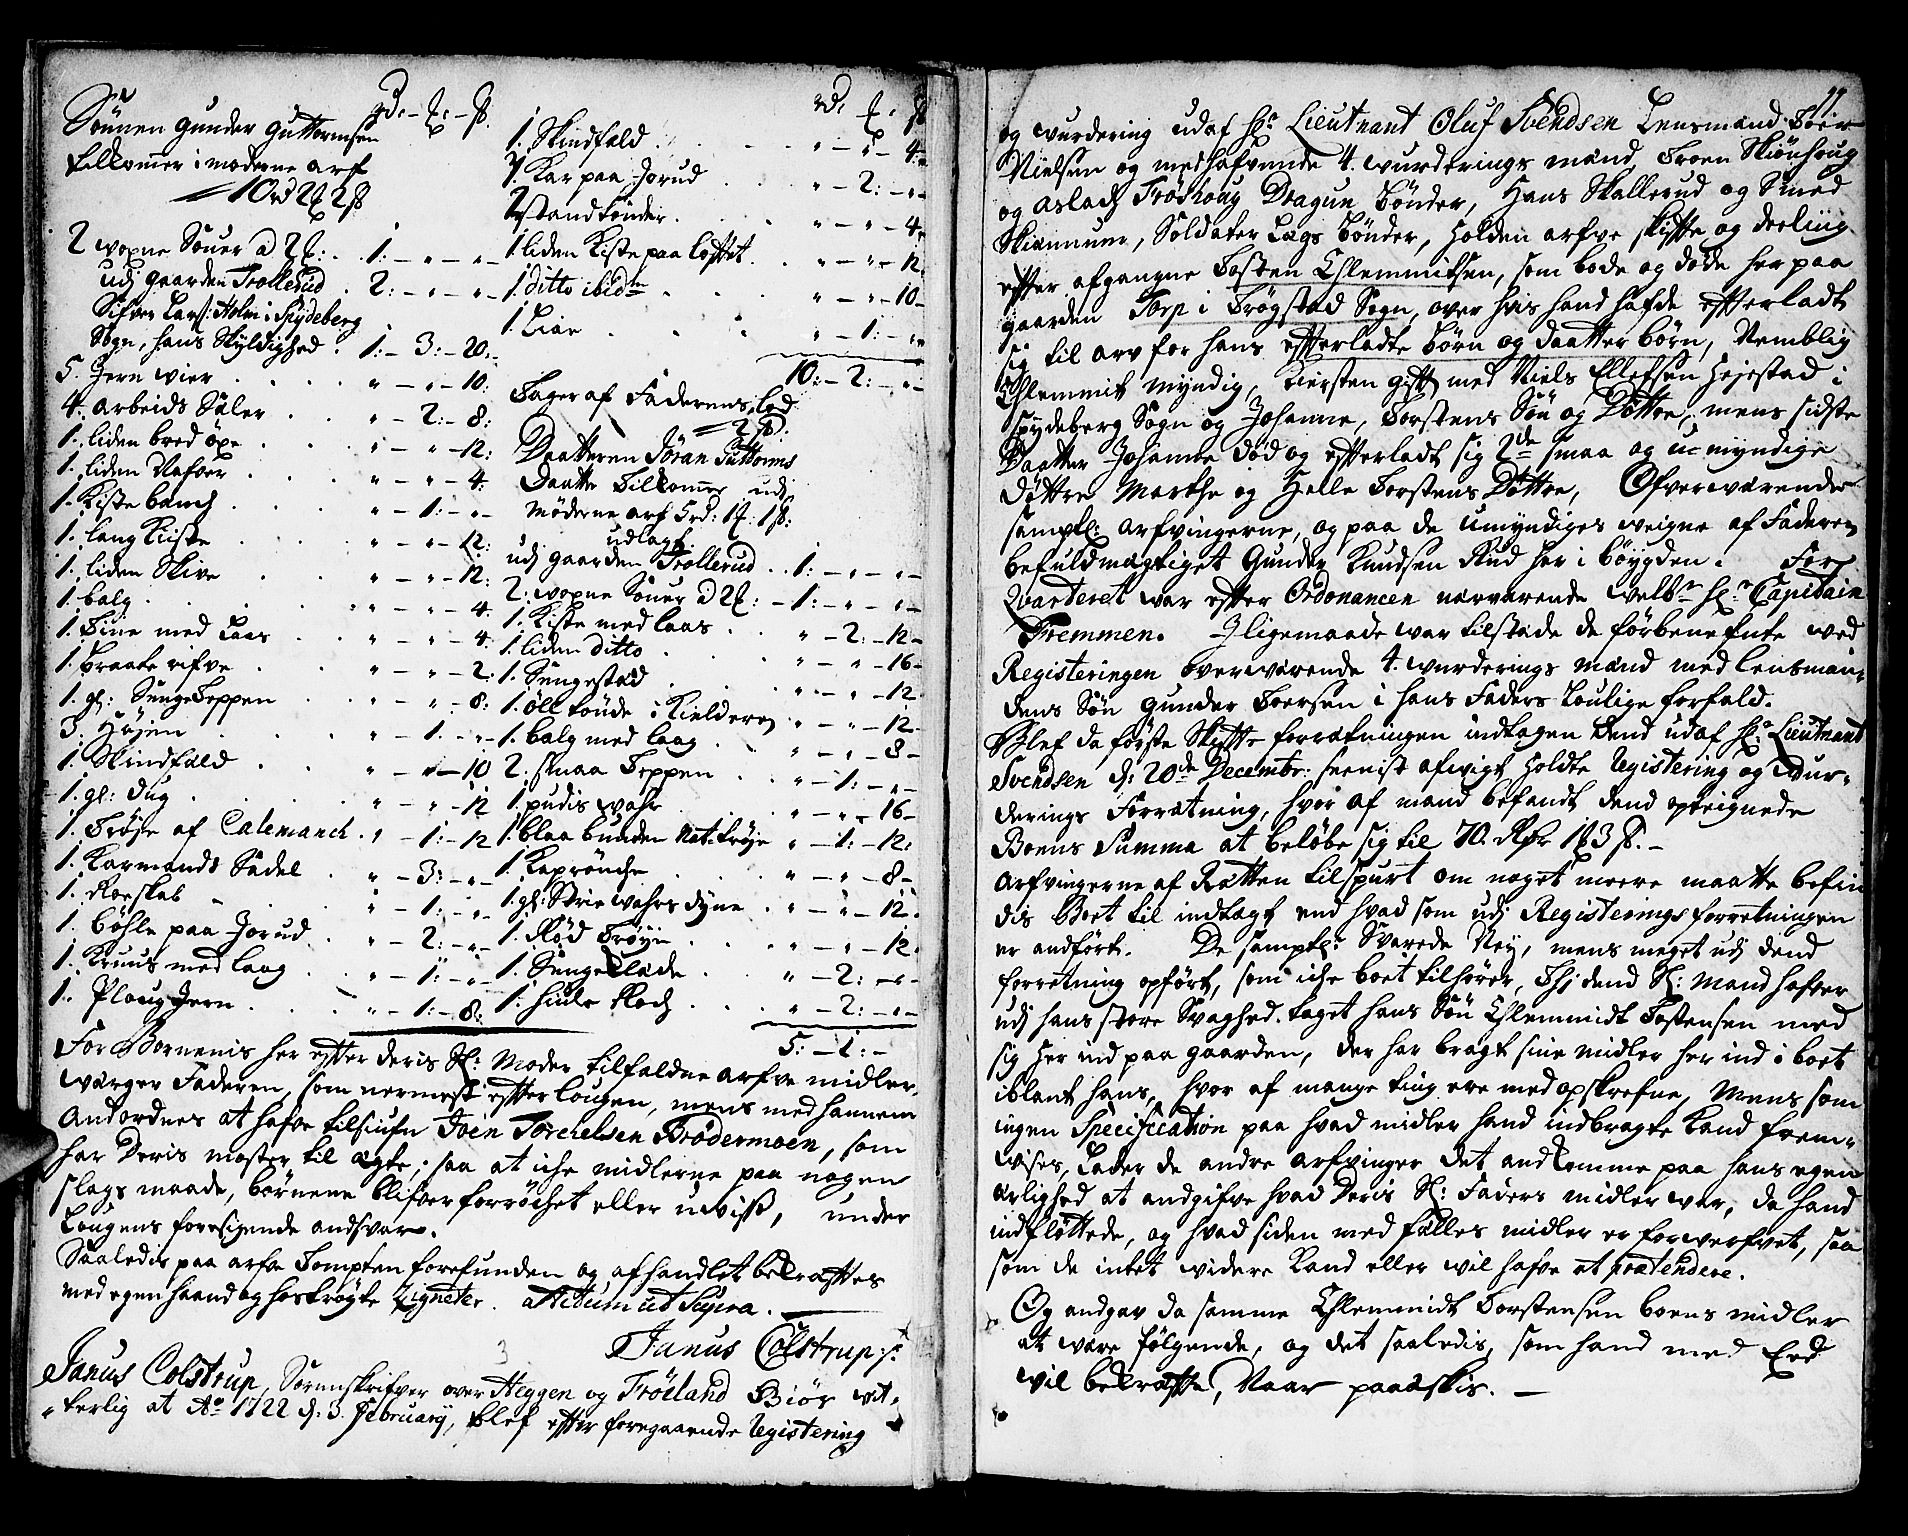 rd:-ƶ:-ß.
Sönnen Gunder Guttormsen
tilkomer i moderne arf
10 rd 2ƶ 2ß
2 voxne Souer a 2ƶ: . 1:-"-"-
udj gaarden Trollerud . 2:-"-"-
Sifver Lars: Holm i Spydeberg
Sogn, hans Skyldighed . 1:-3:-20:-
5. Jern vier . . . "-"-10.
4. arbeids Säler . . "-2:-8:
1. liden bred öxe . . "-"-12:
1. liden Nafver . . "-"-4:
1. Kiste banch . . "-1:-"-
1. lang Kiste . . "-"-12:
1. liden Skive . . "-"-12:
1. balg . . . "-"-4.
1. Tine med Laas . . "-"-4:
1. braate rifve . . "-"-2:
1. gl: Senge Teppen . . "-"-8:
3. Höjen . . . "-1.-"-
1. Skindfald . . "-"-10
1. gl: dug . . . "-"-12
1. Tröje af Calemanch . "-1:-12
1. Karmands Sadel . "-3:-"-
1. Roeskab . . "-1:-"-
1. böhle paa Jorud . "-2:-"-
1. Kruus med laag . "-1:-"-
1. Ploug Jern . . "-1:-8:
rd: ƶ: ß
1. Skindfald . . . "-"-4:
1. Kar paa Jorud . . "-2:-"-
2. stand tönder . . "-"-4:
1. liden Kiste paa loftet . . "-"-12:
1. ditto ibidm . . "-"-10-
1. Liar . . . "-1:-"-
10:-2:-"-
Tager af Faderens lod
2ß:
Daatteren Jöran Guttorms
Daatter Tilkommer udj
Möderne arf 5rd: 1ƶ: 1ß:
udlagt
udj gaarden Trollerud . . 1:-"-"-
2: voxne Souer a 2ƶ: -1:-"-"-
1. Kiste med laas . . "-2:-12-
1. liden ditto . . "-"-16-
1. Sengestad . . "-"-12.
1. öll tönde i Kielderen "-"-12-
1. balg med laag . . "-"-8-
2: smaa Teppen . . "-1:-"-
1. pudis vahr . . "-"-16-
1. blaa bunden Nat: tröje "-1:-12:
1. Kaprönche . . "-"-8-
1. gl: Strie wahrs dyne . "-"-12.
1. Röd Tröye . . "-"-12.
1. Sengeklæde . . "-2:-"-
1. hiule Roch . . "-2:-"-
5:-1:-
For Bornenis her efter deris Sl: Moder tilfaldne arfve midler,
wærger Faderen, som nermest efter lougen, mens med hannem
andordnes at hafve tilsiufn Joen Torchelsen Brödermoen, som
har Deris moster til ægte; saa at iche midlerne paa nogen
slags maade, börnene blifver forröchet eller uviss, under
Lougens foresigende andsvar.
Saaledis paa arfve Tompten forefunden og afhandlet bekræftes
med egen haand og hoströgte Zigneter. Actum ut Supra.
Janus Colstrup
3
Janus Colstrup, Sorenskrifver over Heggen og Fröeland Giör vit-
terlig at Ao 1722 d: 3. February, blef efter foregaaende Registering
11.
og wurdering udaf Hr. Lieutnant Oluf Svendsen Lensmand Toer
Nielsen og medhafvende 4. wurderings mænd, Troen Skiönhoug
og Aslach Fröshoug Dragun bönder, Hans Skallerud og Smed
Skiennum, Soldater Lægs bönder, holden arfve skifte og deeling
efter afgangne Tosten Chlemmitsen, som bode og döde her paa
gaarden Torp i Trögstad Sogn, over hvis hand hafde efterladt
sig til arv for hans efterladte börn og daatter börn, Nemblig
Chlemmit myndig, Kiersten gift med Niels Ellefsen Hejestad i
Spydeberg Sogn og Johanne, Torstens Sön og Döttre, mens sidste
Daatter Johanne död og efterladt sig 2de smaa og umyndige
döttre Marthe og Helle Torstens Döttre, Ofverværende
samptl: arfvingerne, og paa de umyndiges veigne af Faderen
befuldmægtiget Gunder Knudsen Rud her i böygden. For
Qvarteret war efter Ordonancen nærværende welbr Hr. Capitain
Fremmen. Jligemaade war tilstæde de förbenefnte ved
Registeringen overværende 4. wurderings mænd med lensman-
dens Sön Gunder Toersen i hans Faders Loulige forfald.
Blef da förste Skifte forretningen indtagen dend udaf Hr. Lieutnant
Svendsen d: 20de Decembr: seenist afvigt holdte Registering og Vur-
derings Forretning, hvor af mand befandt dend opteignede
Boens Summa at belöbe sig til 70. Rdr 1ƶ 3ß. -
Arfvingerne af Retten tilspurt om noget meere maatte befin
dis Boet til indtægt end hvad som udj Registerings forretningen
er andfört. De samptl: Svarede Ney, mens meget udj dend
forretning opfört, som iche boet tilhörer, Thj dend Sl: mand hafver
udj hans store Svaghed taget hans Sön Chlemmidt Tostensen med
sig her ind paa gaarden, der har bragt sine midler her ind i boet
iblant hans, hvor af mange ting ere med opskrefne, Mens som
ingen Specification paa hvad midler hand indbragte kand frem-
vises, Lader de andre arfvinger det andkomme paa hans egen
ærlighed at andgifve hvad Deris Sl: Faders midler war, da hand
indflöttede, og hvad siden med fælles midler er forverfvet, saa
som de intet videre kand eller vil hafve at prætendere.
Og andgav da samme Chlemmidt Torstensen boens midler
at være fölgende, og det saaledis, som hand med Eed
vil bekræfte, Naar paaæskis. -